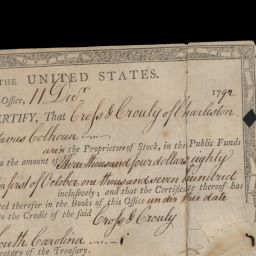 THE UNITED STATES.
Office, 11 Decr. 1792
CERTIFY, That Cross & Crouly of Charleston
Calhoun
are the Proprietors of Stock, in the Public Funds
to the amount of Eleven thousand four dollars eighty
first of October one thousand seven hundred
inclusively; and that the Certificate thereof has
ed therefor in the Books of this Office under this date
to the Credit of the said Cross & Crouly
South Carolina
cretary of the Treasury.